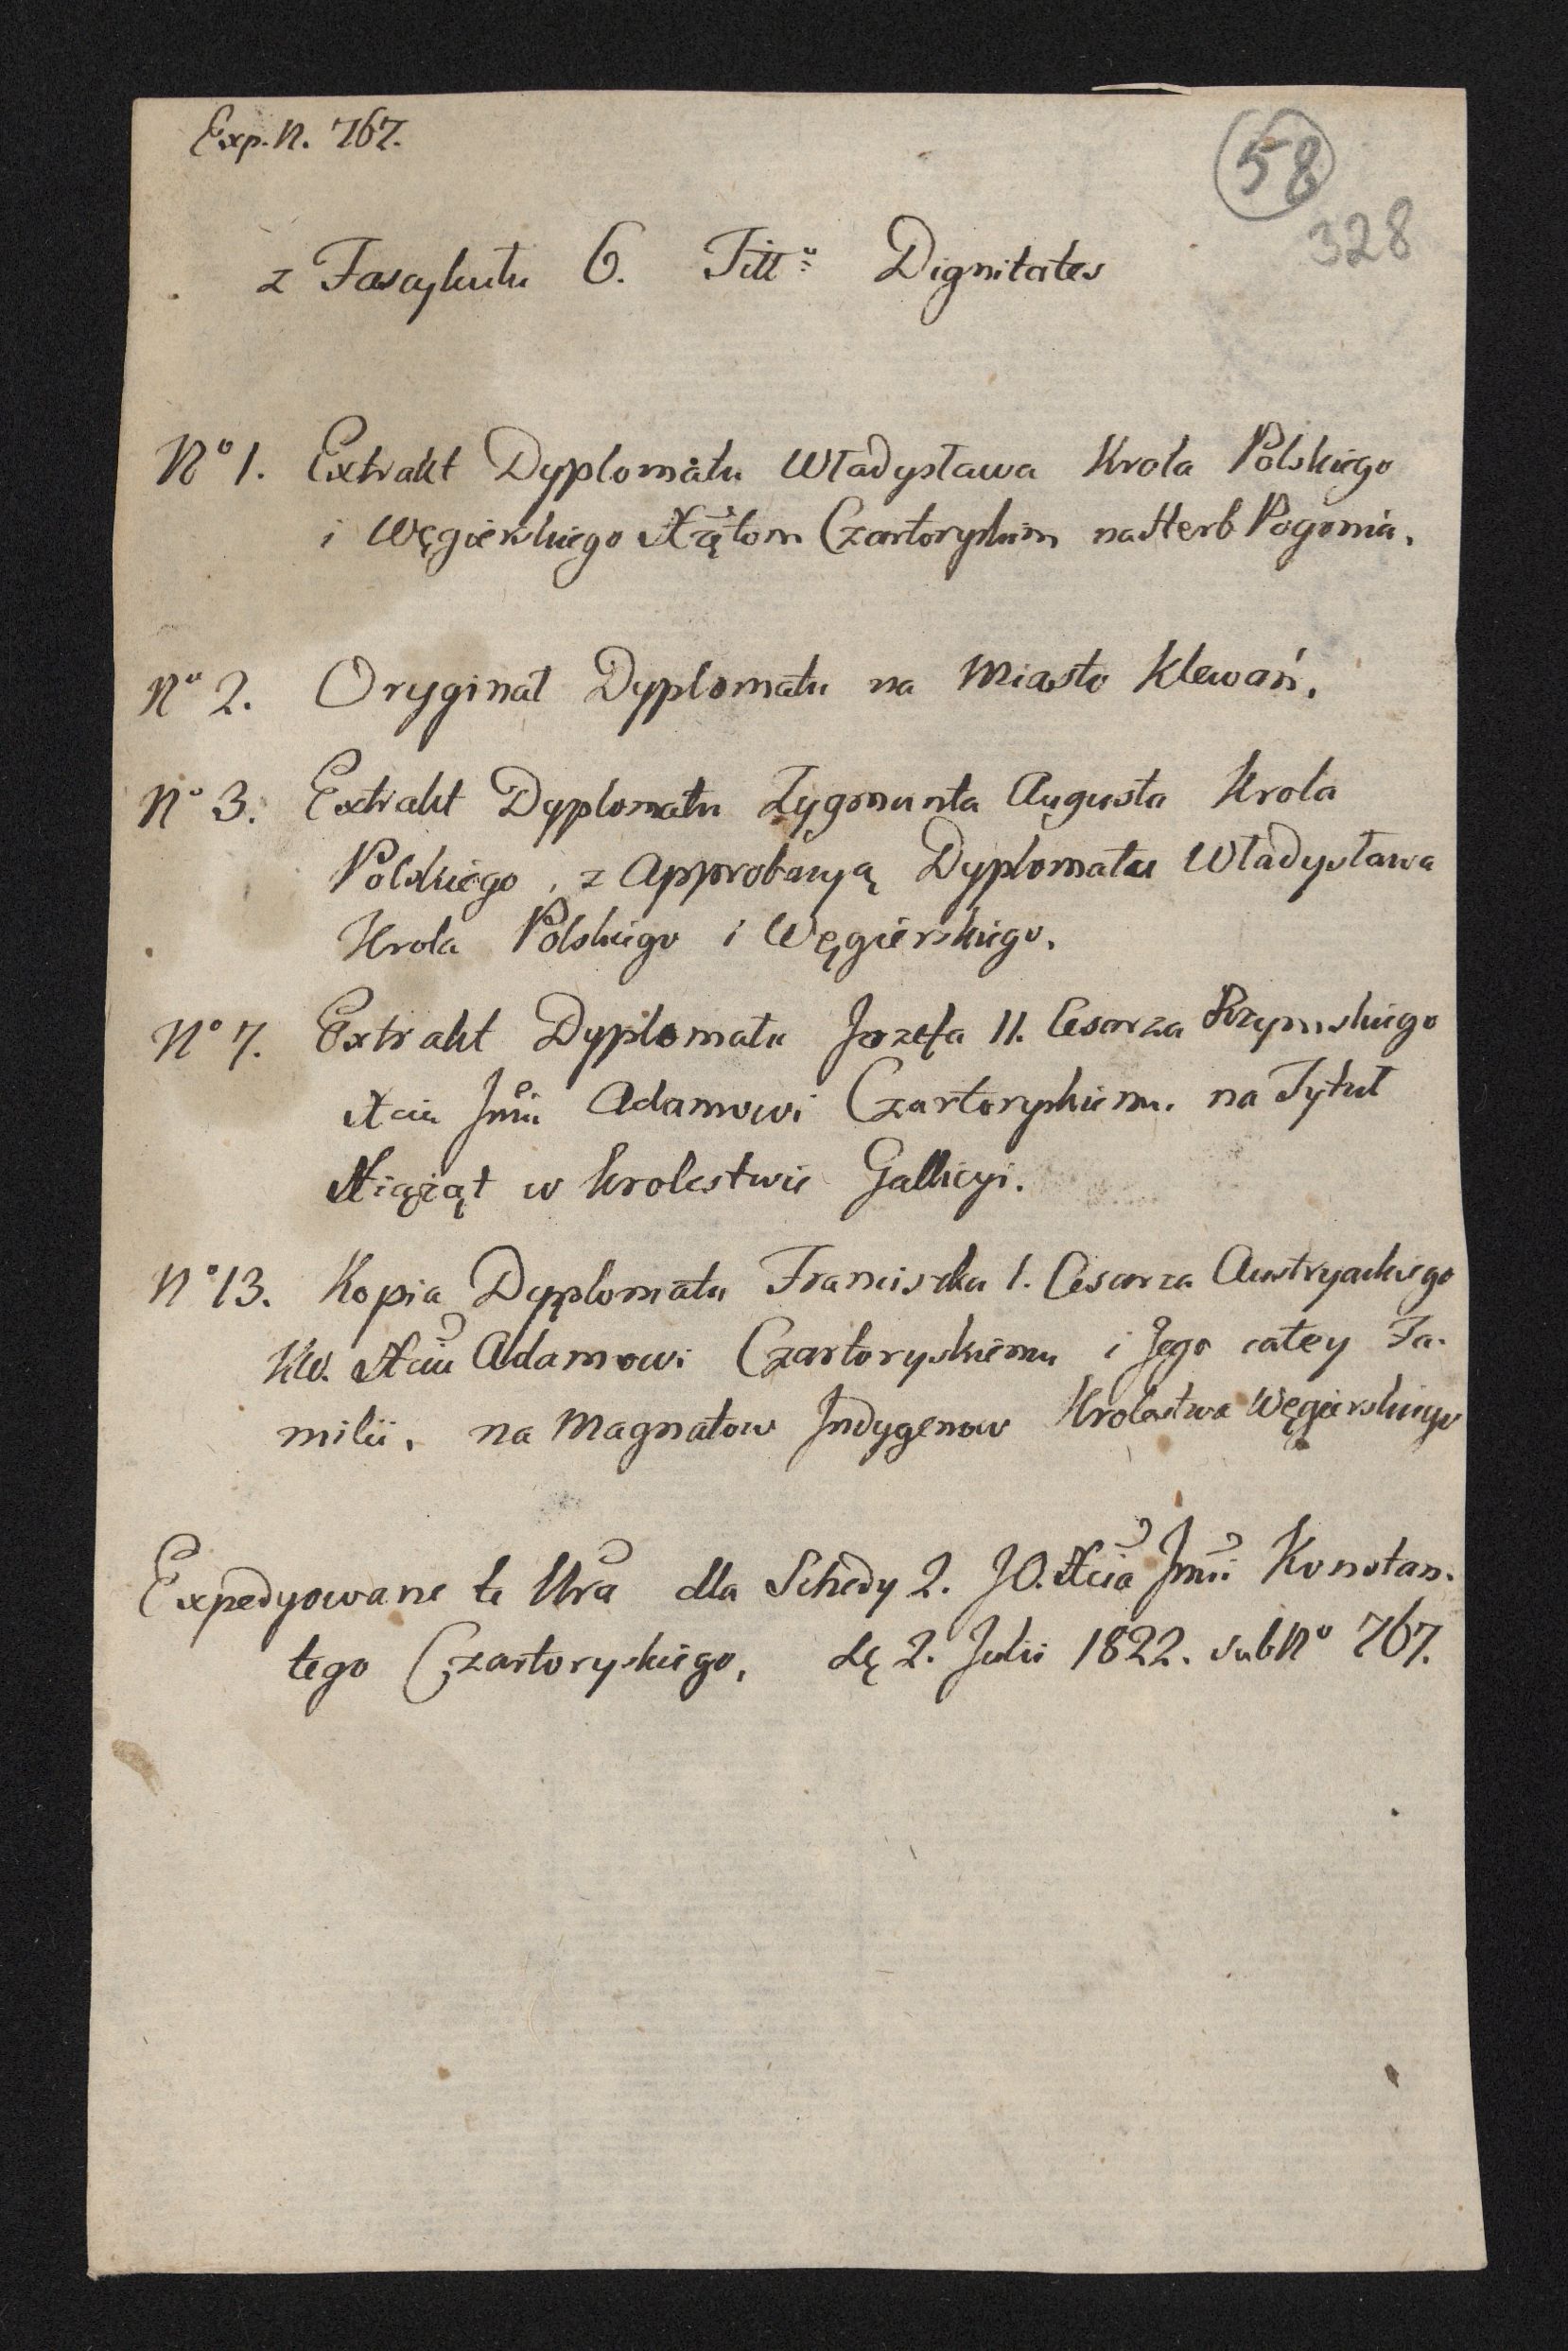 Exp. N. 767.
58
328
z Fascykułu 6. Titt: Dignitates
No 1. Extrakt Dyplomatu Władysława Krola Polskiego
i Węgierskiego Xżątom Czartoryskim na Herb Pogonia.
No 2. Oryginał Dyplomatu na Miasto Klewań.
No 3. Extrakt Dyplomatu Zygmunta Augusta Krola
Polskiego, z Approbacyą Dyplomatu Władysława
Krola Polskiego i Węgierskiego.
No 7. Extrakt Dyplomatu Jozefa II. Cesarza Rzymskiego
Xciu Jmci Adamowi Czartoryskiemu na Tytuł
Xiążąt w Krolestwie Gallicyi.
No 13. Kopia Dyplomatu Franciszka I. Cesarza Austryackiego
Xciu Adamowi Czartoryskiemu i Jego całey Fa-
milii, na Magnatow Indygenow Krolestwa Węgierskiego
Expedyowane te Nra dla Schedy 2. JO. Xcia Jmci Konstan-
tego Czartoryskiego, 2. Julii 1822. sub No 767.